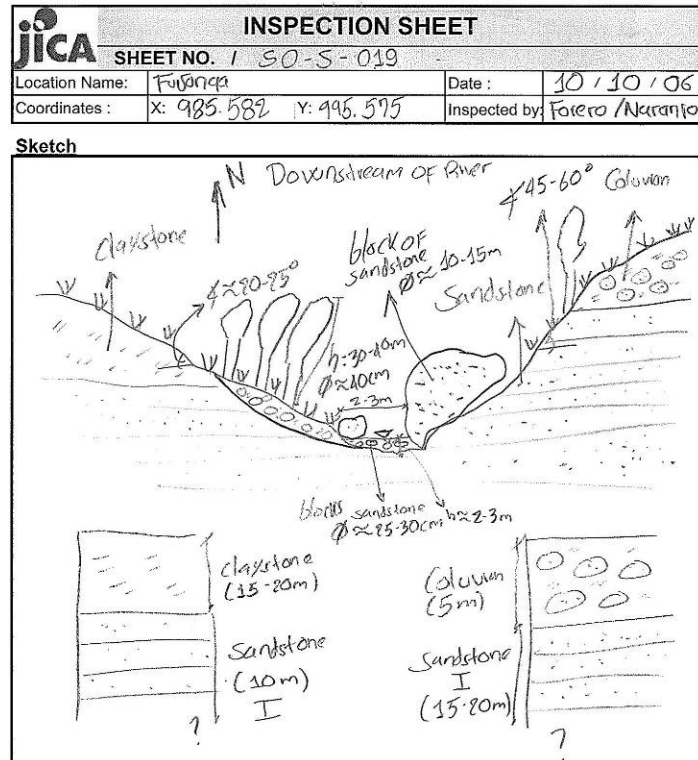 jICA
INSPECTION SHEET
SHEET NO. / SO-S-019
Location Name:
Date : 10 / 10 / 06
Coordinates : X: 985.582 Y: 995.575 Inspected by: Forero / Naranjo
Sketch
N Dowunstream OF River
∢45-60° Coluvian
Claystone
block OF
sandstone
Ø≈10-15m
Sandstone
∢≈20-25°
h=30-40m
Ø≈40cm
2-3m
sandstone
Ø≈25-30cm
h≈2-3m
Claystone
(15-20m)
Sandstone
(10m)
I
?
Coluvian
(5m)
Sandstone
I
(15-20m)
?